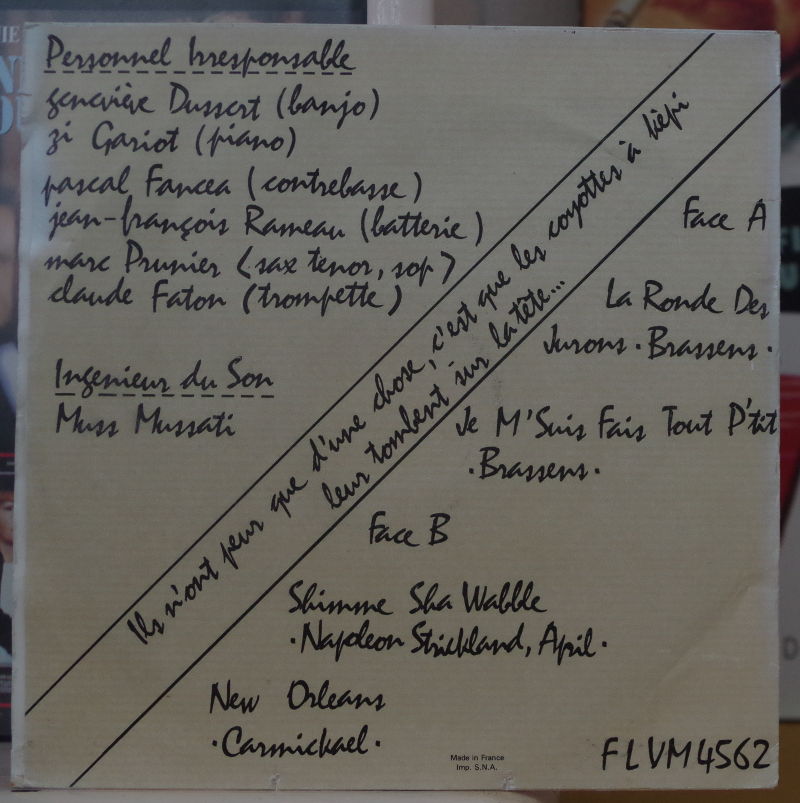 Personnel Irresponsable
geneviève Dussert (banjo)
zi Gariot (piano)
pascal Fancea (contrebasse)
jean-françois Rameau (batterie)
marc Prunier (sax tenor, sop)
claude Faton (trompette)
Ingenieur du Son
Muss Mussati
Ils n'ont peur que d'une chose, c'est que les coyottes à lièpi
leur tombent sur la tête...
Face A
La Ronde Des
Jurons . Brassens .
Je M'Suis Fais Tout P'tit
. Brassens .
Face B
Shimme Sha Wabble
. Napoleon Strickland, April .
New Orleans
. Carmickael .
Made in France
Imp. S.N.A.
FLVM4562